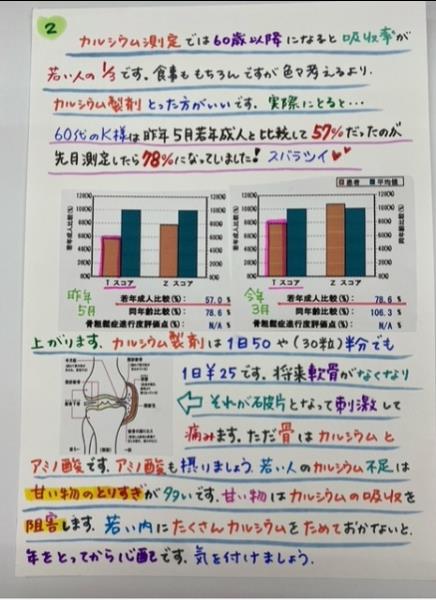 2
カルシウム測定では60歳以降になると吸収率が
若い人の1/3です。食事ももちろんですが色々考えるより、
カルシウム製剤とった方がいいです。実際にとると…
60代のK様は昨年5月若年成人と比較して57%だったのが
先月測定したら78%になっていました! スバラツイ♥♥
患者 平均値
若年成人比較(%)
同年齢比較(%)
Tスコア Zスコア
Tスコア Zスコア
昨年5月
若年成人比較(%): 57.0 %
同年齢比較(%): 78.6 %
骨粗鬆症進行度評価点(%): N/A %
今年3月
若年成人比較(%): 78.6 %
同年齢比較(%): 106.3 %
骨粗鬆症進行度評価点(%): N/A %
上がります。カルシウム製剤は1日50や(30粒)半分でも
1日¥25です。将来軟骨がなくなり
それが破片となって刺激して
痛みます。ただ骨はカルシウムと
アミノ酸です。アミノ酸も摂りましょう。若い人のカルシウム不足は
甘い物のとりすぎが多いです。甘い物はカルシウムの吸収を
阻害します。若い内にたくさんカルシウムをためておかないと、
年をとってから心配です。気を付けましょう。